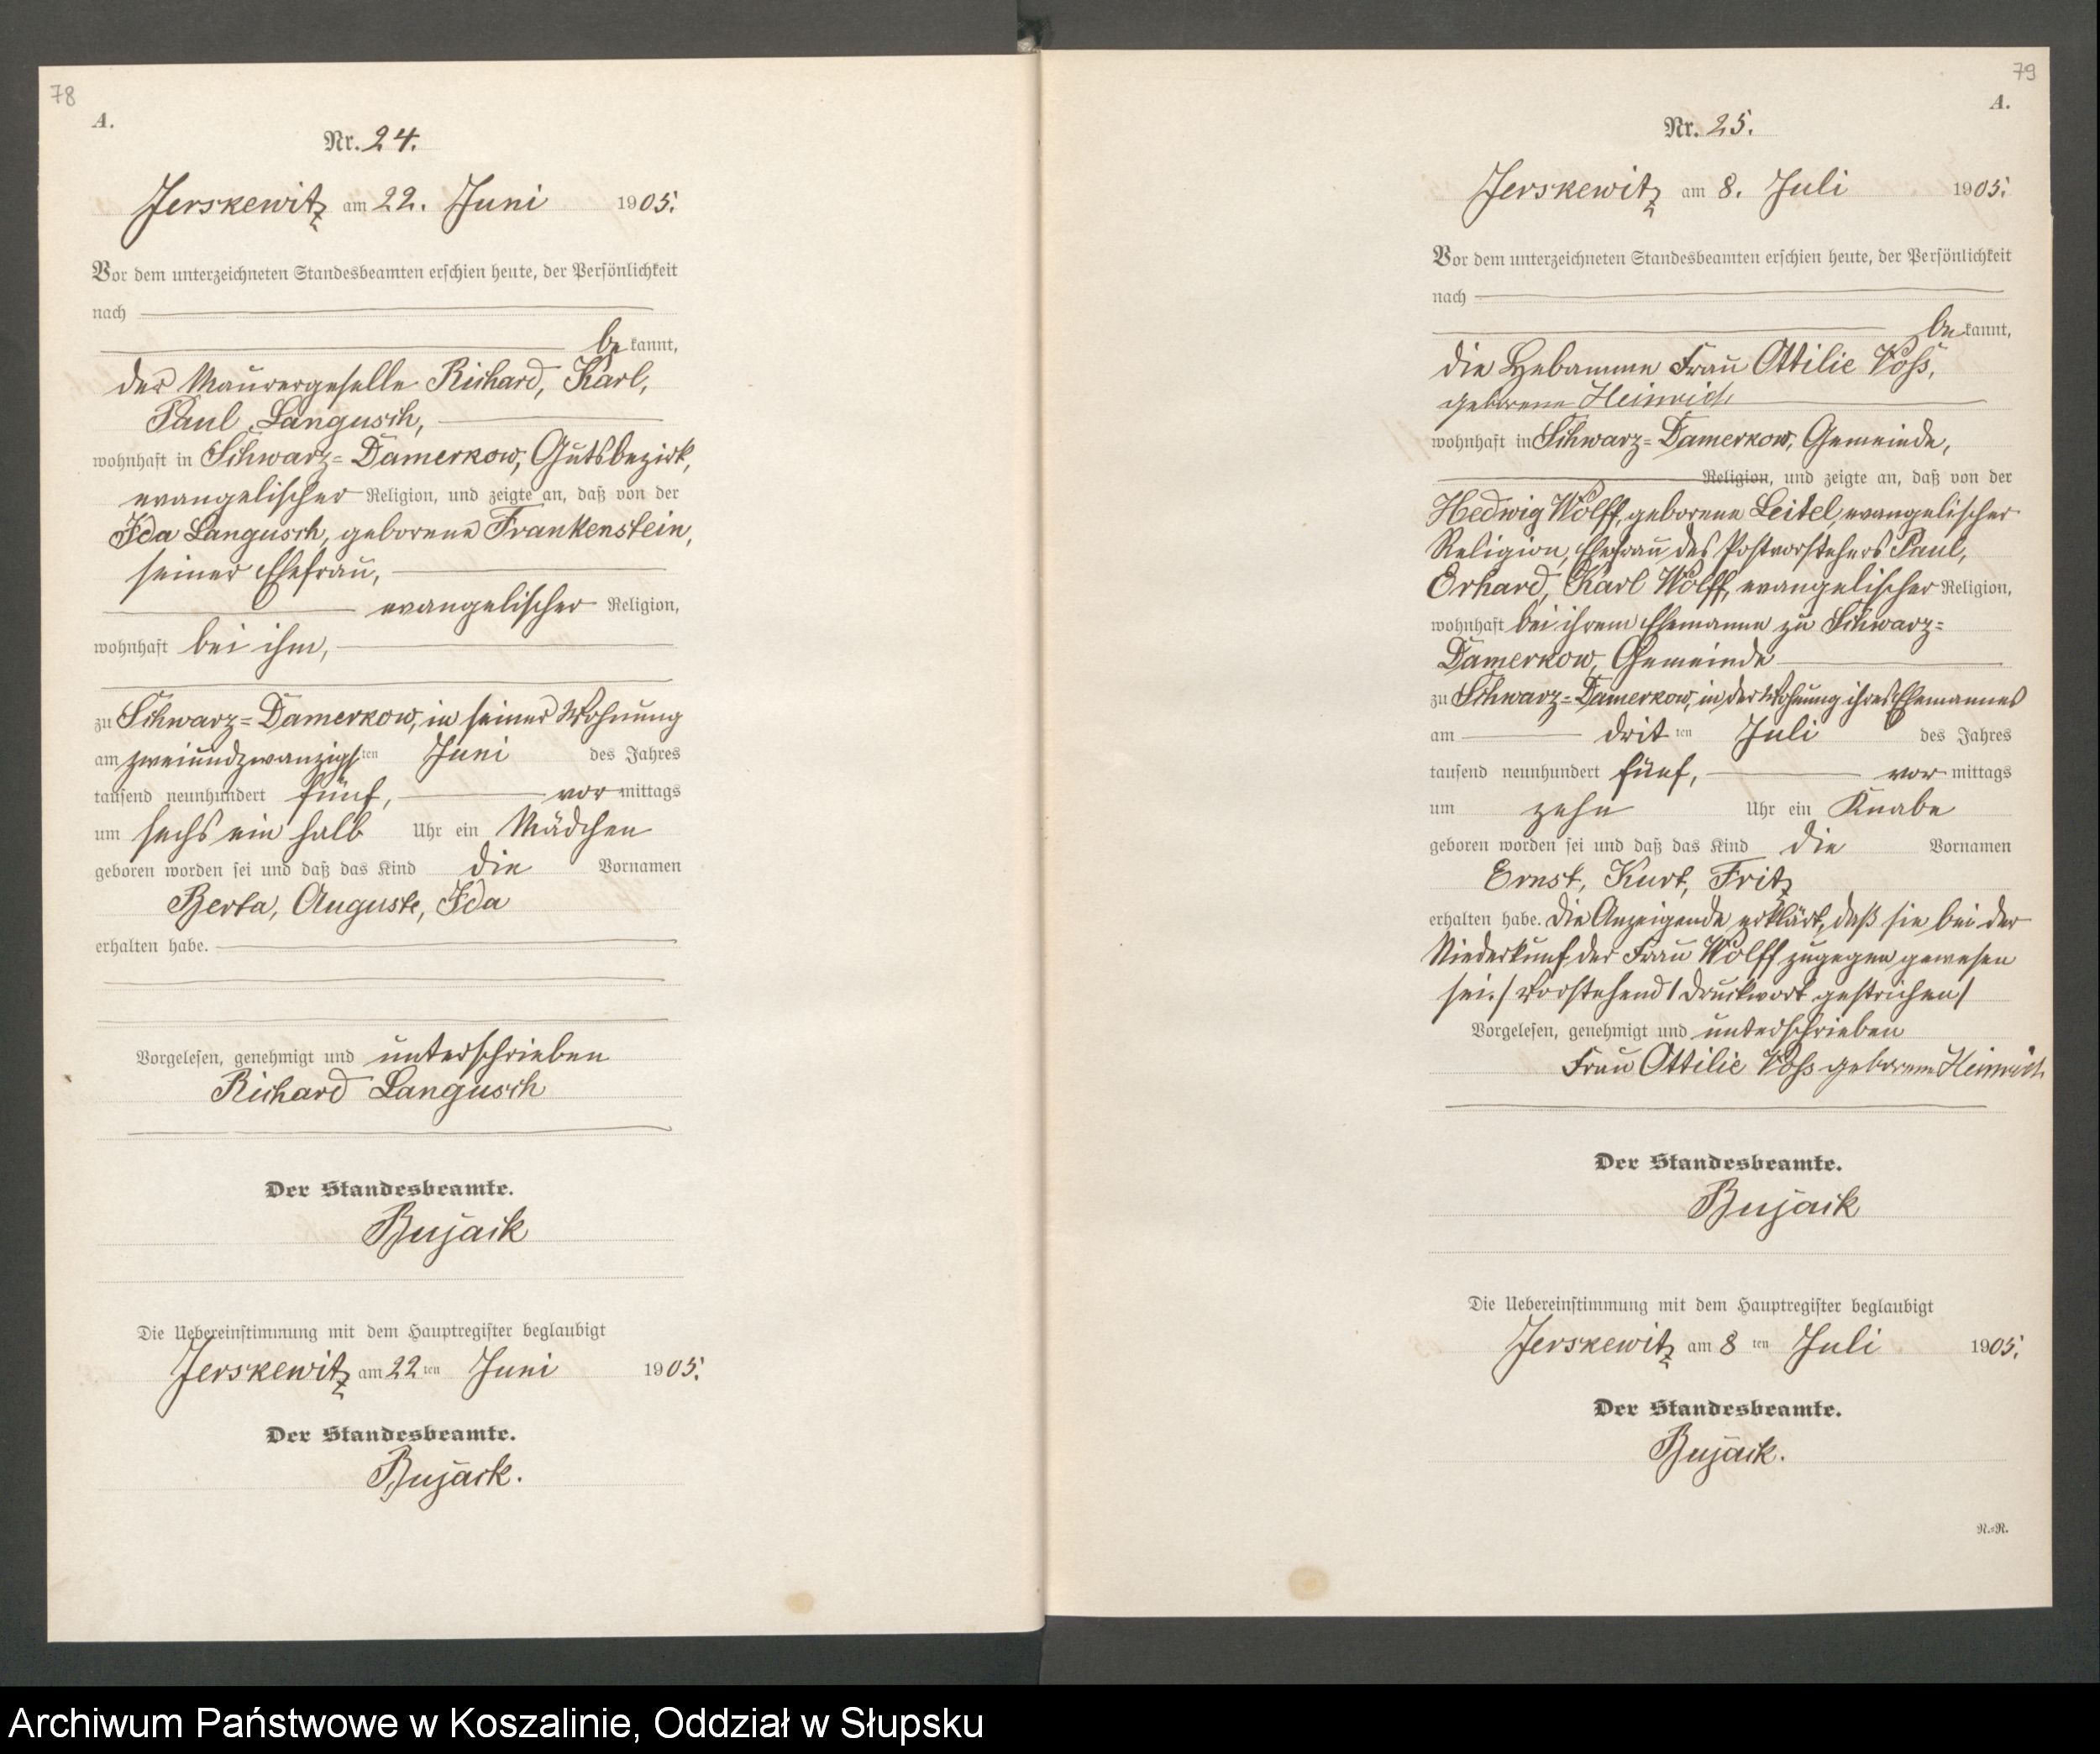 78
A.
Nr. 24.
Jerskewitz am 22. Juni 1905.
Vor dem unterzeichneten Standesbeamten erschien heute, der Persönlichkeit
nach
be kannt,
der Maurergeselle Richard, Karl,
Paul Langusch,
wohnhaft in Schwarz=Damerkow, Gutsbezirk,
evangelischer Religion, und zeigte an, daß von der
Ida Langusch, geborene Frankenstein,
seiner Ehefrau,
evangelischer Religion,
wohnhaft bei ihm,
zu Schwarz=Damerkow, in seiner Wohnung
am zweiundzwanzigsten Juni des Jahres
tausend neunhundert fünf, vor mittags
um sechs ein halb Uhr ein Mädchen
geboren worden sei und daß das Kind die Vornamen
Berta, Auguste, Ida
erhalten habe.
Vorgelesen, genehmigt und unterschrieben
Richard Langusch
Der Standesbeamte.
Bujack
Die Uebereinstimmung mit dem Hauptregister beglaubigt
Jerskewitz am 22ten Juni 1905.
Der Standesbeamte.
Bujack.
79
A.
Nr. 25.
Jerskewitz am 8. Juli 1905.
Vor dem unterzeichneten Standesbeamten erschien heute, der Persönlichkeit
nach
be kannt,
die Hebamme Frau Ottilie Voß,
geborene Heinrich
wohnhaft in Schwarz=Damerkow, Gemeinde,
Religion, und zeigte an, daß von der
Hedwig Wolff, geborene Leitel, evangelischer
Religion, Ehefrau des Postvorstehers Paul,
Erhard, Karl Wolff, evangelischer Religion,
wohnhaft bei ihrem Ehemanne zu Schwarz=
Damerkow, Gemeinde
zu Schwarz=Damerkow, in der Wohnung ihres Ehemannes
am dritten Juli des Jahres
tausend neunhundert fünf, vor mittags
um zehn Uhr ein Knabe
geboren worden sei und daß das Kind die Vornamen
Ernst, Kurt, Fritz
erhalten habe. Die Anzeigende erklärt, daß sie bei der
Niederkunft der Frau Wolff zugegen gewesen
sei. / Vorstehend 1 Druckwort gestrichen /
Vorgelesen, genehmigt und unterschrieben
Frau Ottilie Voß geborene Heinrich
Der Standesbeamte.
Bujack
Die Uebereinstimmung mit dem Hauptregister beglaubigt
Jerskewitz am 8 ten Juli 1905.
Der Standesbeamte.
Bujack.
N.=R.
Archiwum Państwowe w Koszalinie, Oddział w Słupsku